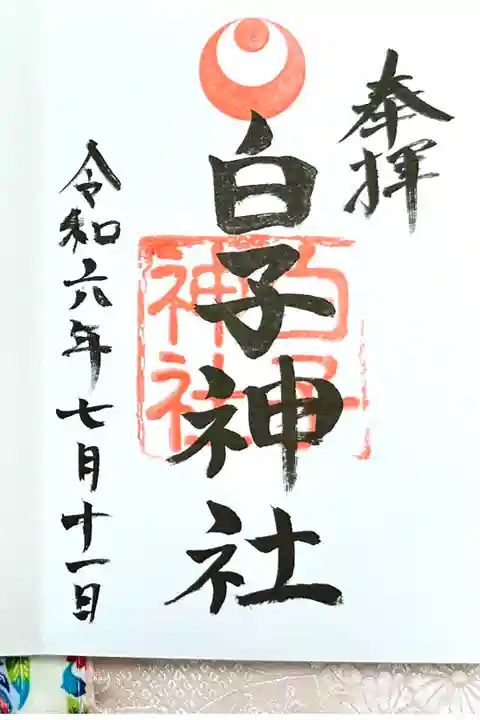 奉拝
白子神社
白子神社
令和六年七月十一日